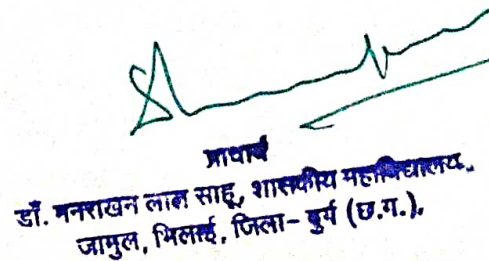 प्राचार्य
डॉ. मनराखन लाल साहू, शासकीय महाविद्यालय,
जामुल, भिलाई, जिला- दुर्ग (छ.ग.),